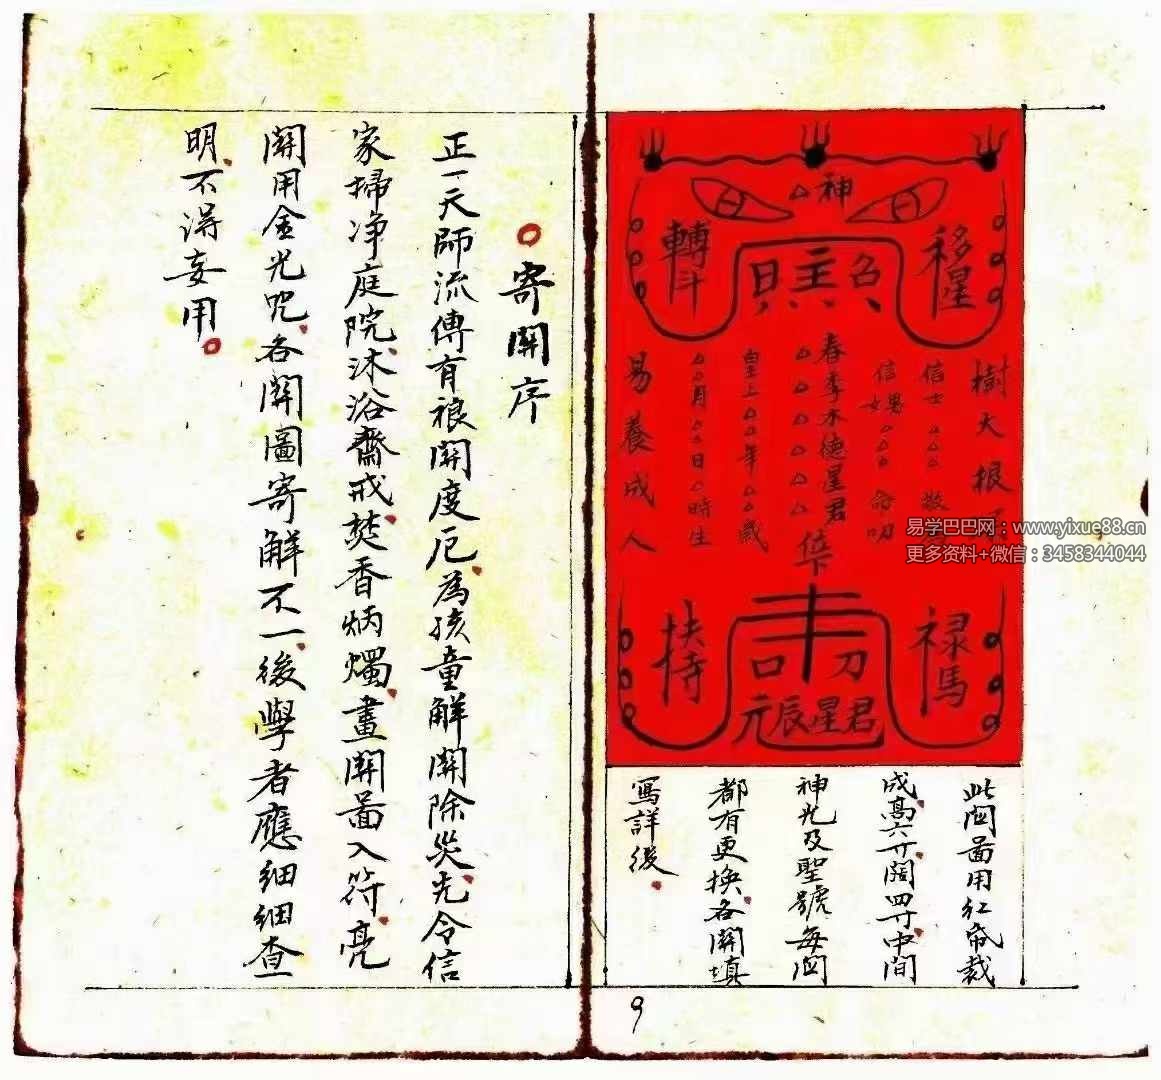 △神
移星
轉斗
樹大根
信士△△△
△△△命叩
春季木德星君
皇上△△年△△歲
△△月△△日△時生
易養成人
祿馬
扶持
元辰星君
此関啚用红帋裁
成高六寸闊四寸中間
神光及聖號每関
都有更换各關填
寫詳後
9
寄關序
正一天師流傳有禳關度厄為孩童解關除災先令信
家掃净庭院沐浴齋戒焚香炳燭畫關啚入符亮
關用金光咒各關圖寄解不一後學者應细细查
明不得妄用
易学巴巴网：www.yixue88.cn
更多资料+微信：3458344044